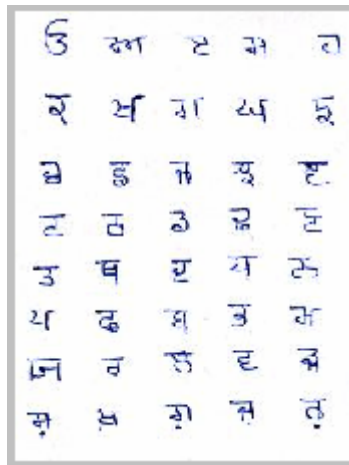 ੳ ਅ ੲ ਸ ਹ
ਕ ਖ ਗ ਘ ਙ
ਚ ਛ ਜ ਝ ਞ
ਟ ਠ ਡ ਢ ਣ
ਤ ਥ ਦ ਧ ਨ
ਪ ਫ ਬ ਭ ਮ
ਯ ਰ ਲ ਵ ੜ
ਸ਼ ਖ਼ ਗ਼ ਜ਼ ਫ਼